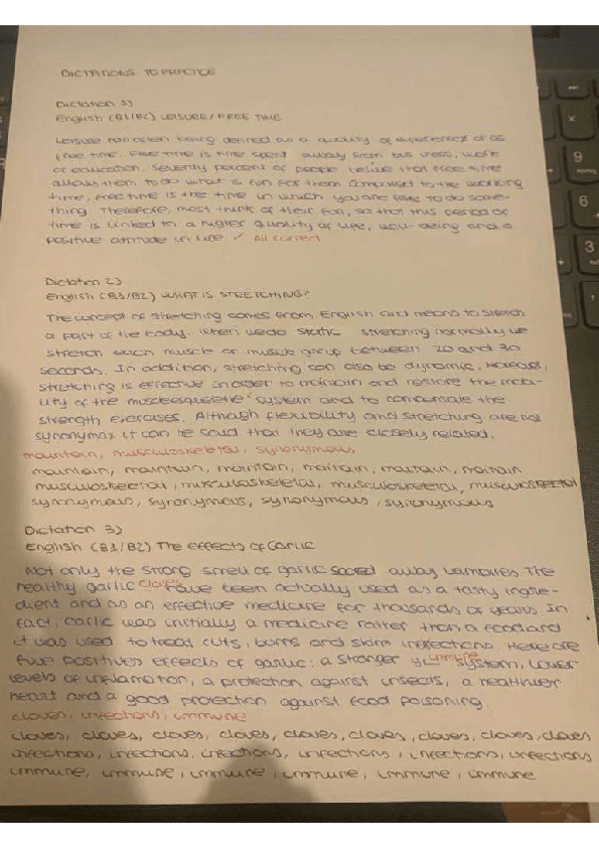 DICTATIONS TO PRACTICE
Dictation 1)
English (B1/B2) LEISURE / FREE TIME
Leisure has often being defined as a quality of experience or as
free time. Free time is time spent away from business, work
or education. Seventy percent of people belive that free time
allows them to do what is fun for them. Compared to the working
time, free time is the time in which you are free to do some-
thing. Therefore, most think of their fun, so that this period of
time is linked to a higher quality of life, well-being and a
positive attitude in life. ✓ All correct
Dictation 2)
English (B1/B2) WHAT IS STRETCHING?
The concept of stretching comes from English and means to stretch
a part of the body. When we do static stretching normally we
stretch each muscle or muscle group between 20 and 30
seconds. In addition, stretching can also be dynamic.
stretching is effective in order to maintain and restore the mobi-
lity of the system and to compensate the
strength exercises. Although flexibility and stretching are not
synonymox it can be said that they are closely related.
musculoskeletal, synonymous
maintain, maintain, maintain, maintain, maintain
musculoskeletal, musculoskeletal, musculoskeletal, musculoskeletal
synonymous, synonymous, synonymous, synonymous
Dictation 3)
English (B1/B2) The effects of Garlic
Not only the strong smell of garlic away vampires. The
healthy garlic cloves have been actually used as a tasty ingre-
dient and as an effective medicine for thousands of years. In
fact, garlic was initially a medicine rather than a food and
it was used to treat cuts, burns and skin infections. Here are
five positives effects of garlic: a stronger immune system, lower
levels of inflamation, a protection against insects, a healthier
heart and a good protection against food poisoning.
cloves, infections, immune
cloves, cloves, cloves, cloves, cloves, cloves, cloves, cloves, cloves
infections, infections, infections, infections, infections, infections
immune, immune, immune, immune, immune, immune